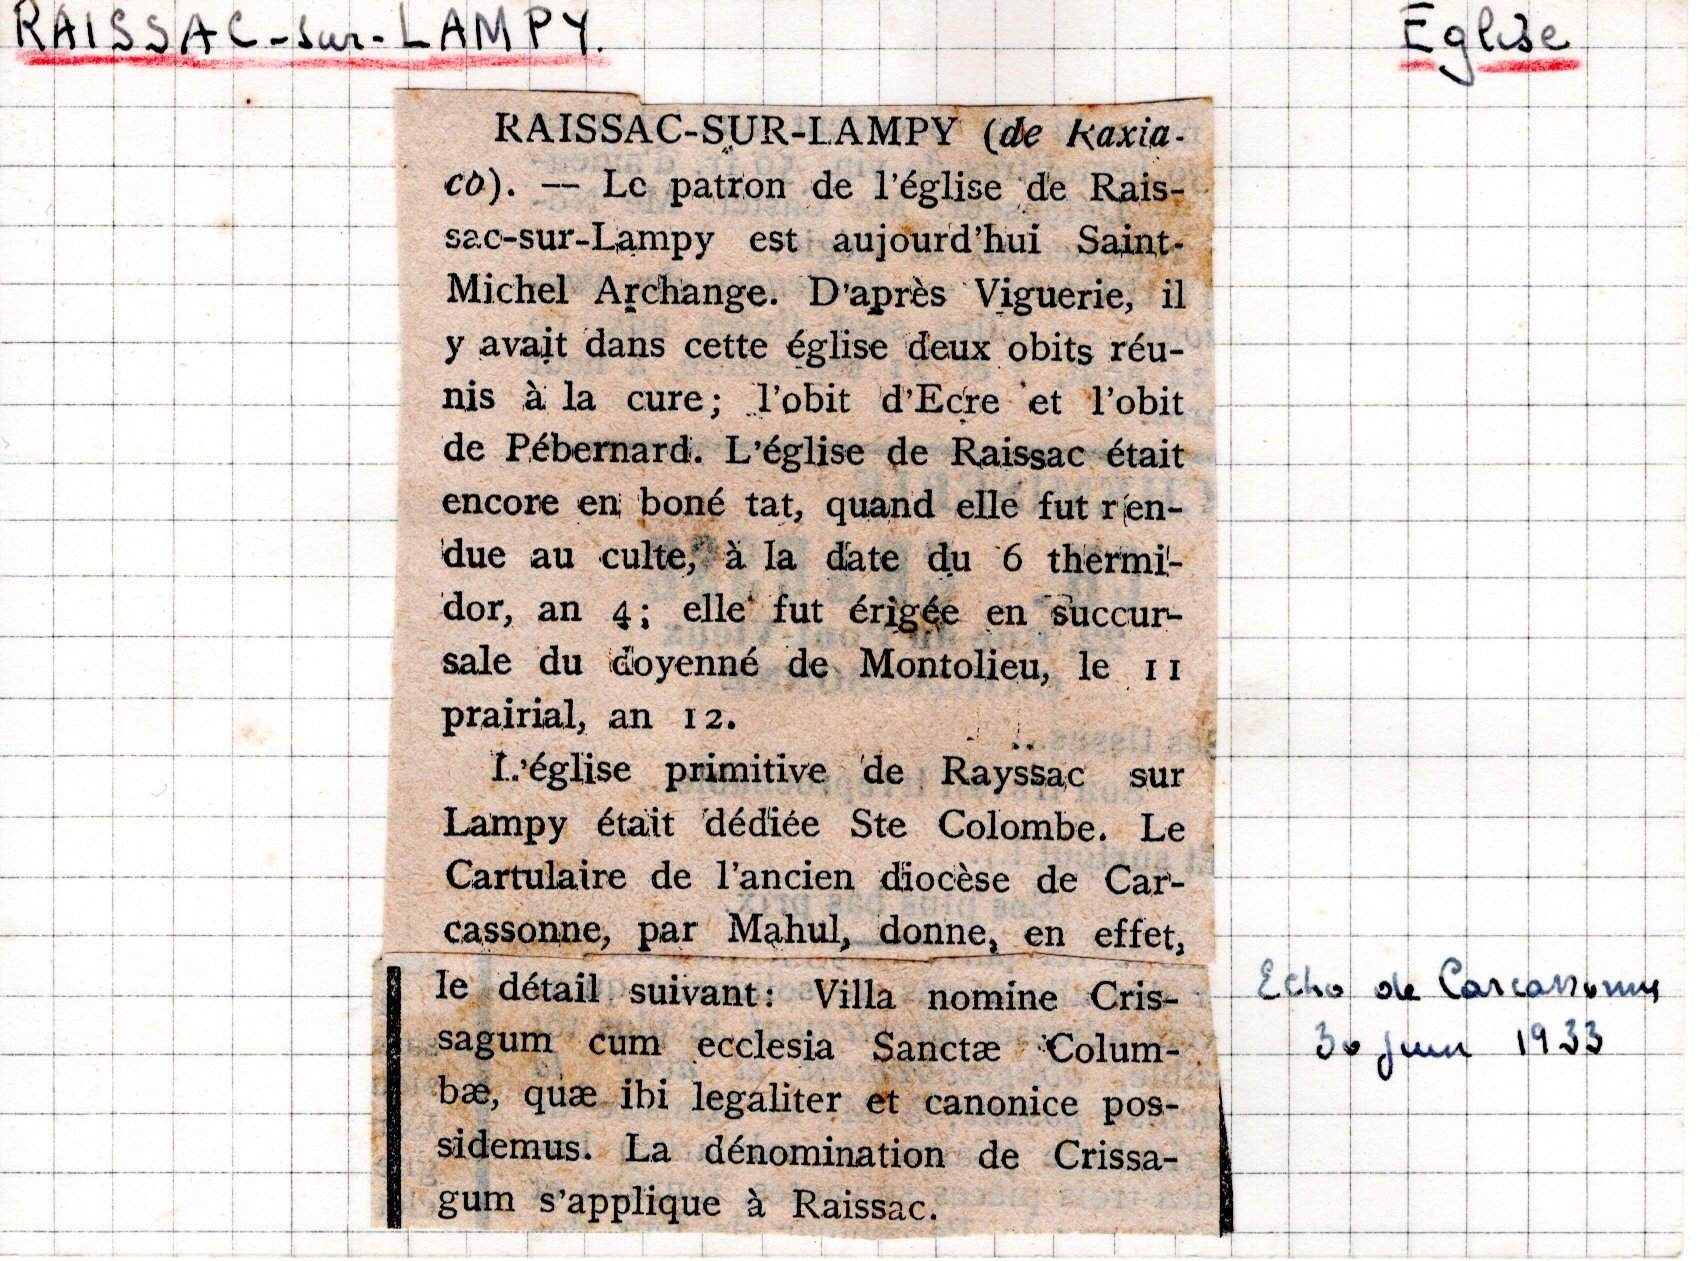 RAISSAC-sur-LAMPY.
Eglise
RAISSAC-SUR-LAMPY (de Raxia-
co). — Le patron de l'église de Rais-
sac-sur-Lampy est aujourd'hui Saint-
Michel Archange. D'après Viguerie, il
y avait dans cette église deux obits réu-
nis à la cure; l'obit d'Ecre et l'obit
de Pébernard. L'église de Raissac était
encore en boné tat, quand elle fut ren-
due au culte, à la date du 6 thermi-
dor, an 4; elle fut érigée en succur-
sale du doyenné de Montolieu, le 11
prairial, an 12.
L'église primitive de Rayssac sur
Lampy était dédiée Ste Colombe. Le
Cartulaire de l'ancien diocèse de Car-
cassonne, par Mahul, donne, en effet,
le détail suivant: Villa nomine Cris-
sagum cum ecclesia Sanctæ Colum-
bæ, quæ ibi legaliter et canonice pos-
sidemus. La dénomination de Crissa-
gum s'applique à Raissac.
Echo de Carcassonne
30 juin 1933